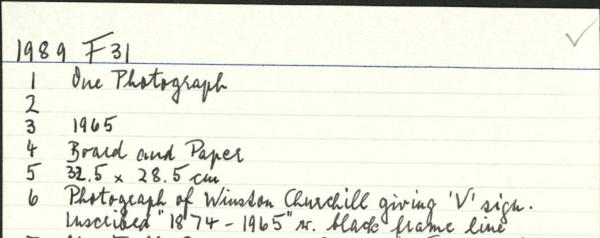 1989 F31
1 One Photograph
2
3 1965
4 Board and Paper
5 32.5 x 28.5 cm
6 Photograph of Winston Churchill giving 'V' sign.
Inscribed "1874-1965" w. black frame line
7